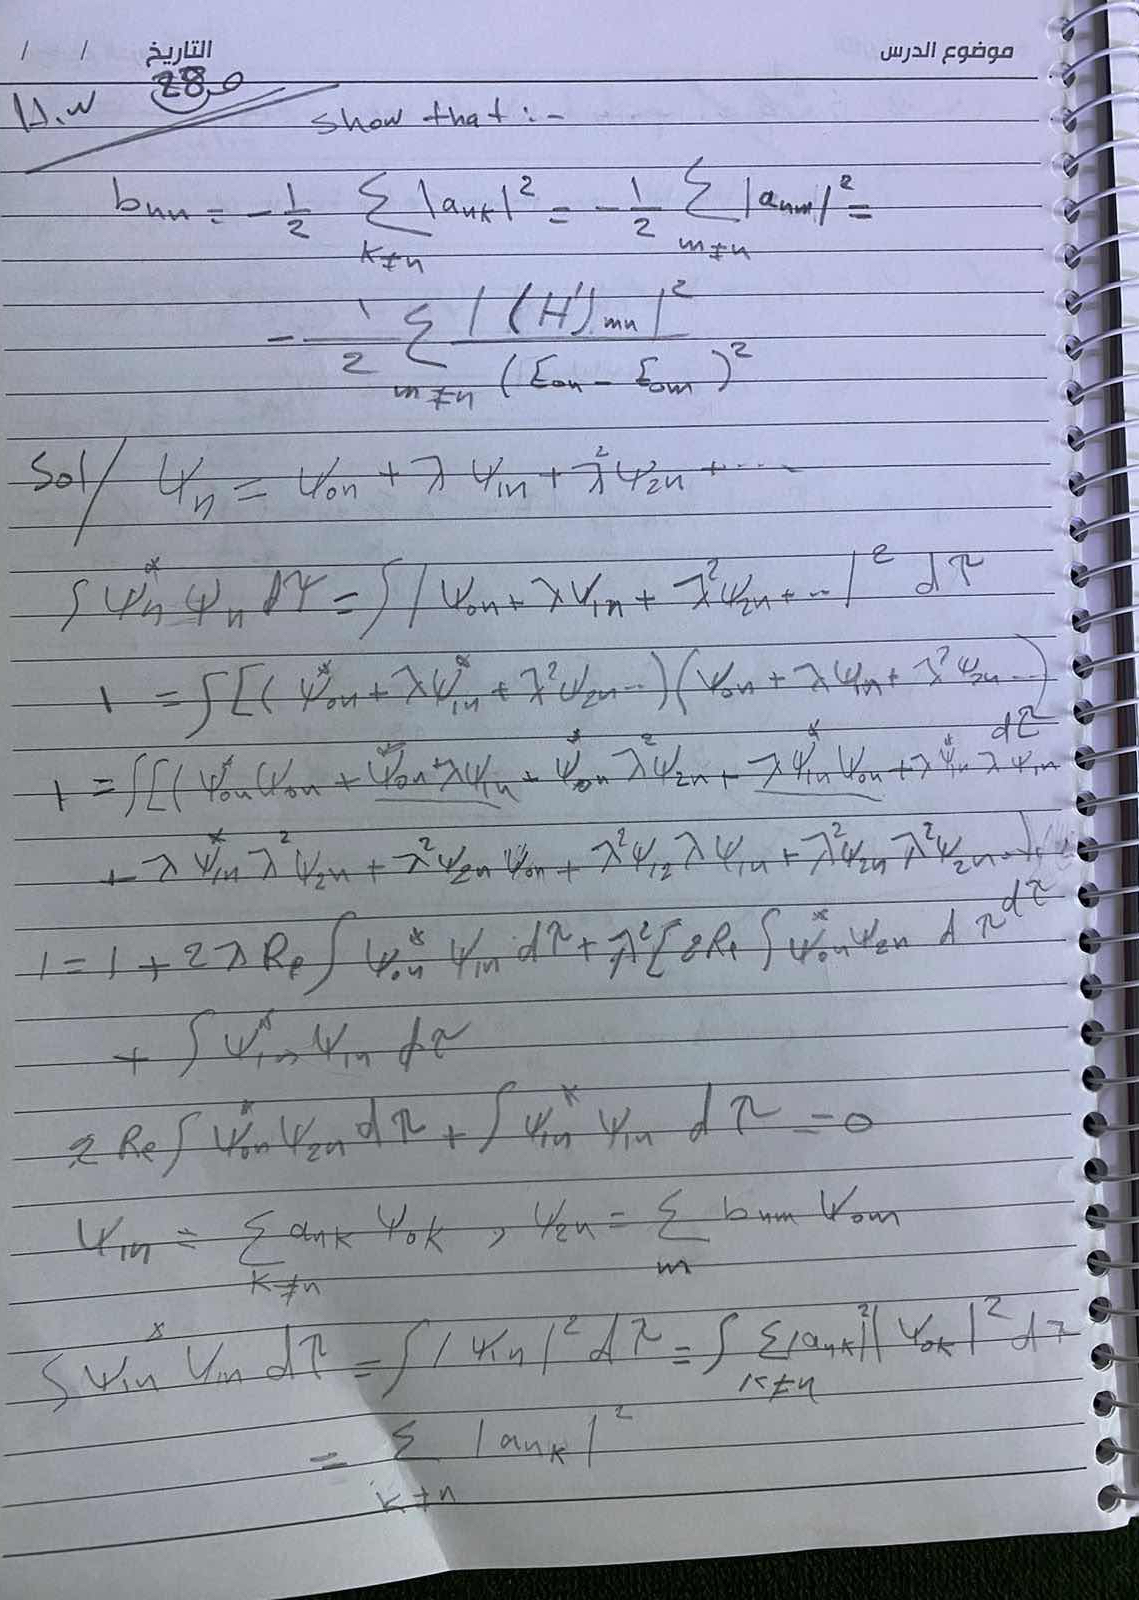 موضوع الدرس التاريخ / /
H.W ص28
show that :-
bnn = -1/2 Σ k≠n |ank|² = -1/2 Σ m≠n |anm|² =
-1/2 Σ m≠n |(H')mn|² / (Eon - Eom)²
Sol/ Ψn = Ψon + λ Ψ1n + λ² Ψ2n + ....
∫ Ψn* Ψn dτ = ∫ |Ψon + λΨ1n + λ²Ψ2n + ...|² dτ
1 = ∫[(Ψ*on + λΨ*1n + λ²Ψ2n ...)(Ψon + λΨ1n + λ²Ψ2n ...) dτ
1 = ∫[(Ψ*on Ψon + Ψ*on λΨ1n + Ψ*on λ²Ψ2n + λΨ*1n Ψon + λΨ*1n λΨ1n
+ λΨ*1n λ²Ψ2n + λ²Ψ2n Ψon + λ²Ψ12 λΨ1n + λ²Ψ2n λ²Ψ2n ...) dτ
1 = 1 + 2λ Re ∫ Ψ*on Ψ1n dτ + λ²[2Re ∫ Ψ*on Ψ2n dτ
+ ∫ Ψ*1n Ψ1n dτ
2 Re ∫ Ψ*on Ψ2n dτ + ∫ Ψ*1n Ψ1n dτ = 0
Ψ1n = Σ k≠n ank Ψok , Ψ2n = Σ m bnm Ψom
∫ Ψ*1n Ψ1n dτ = ∫ |Ψ1n|² dτ = ∫ Σ k≠n |ank|² |Ψok|² dτ
= Σ k≠n |ank|²